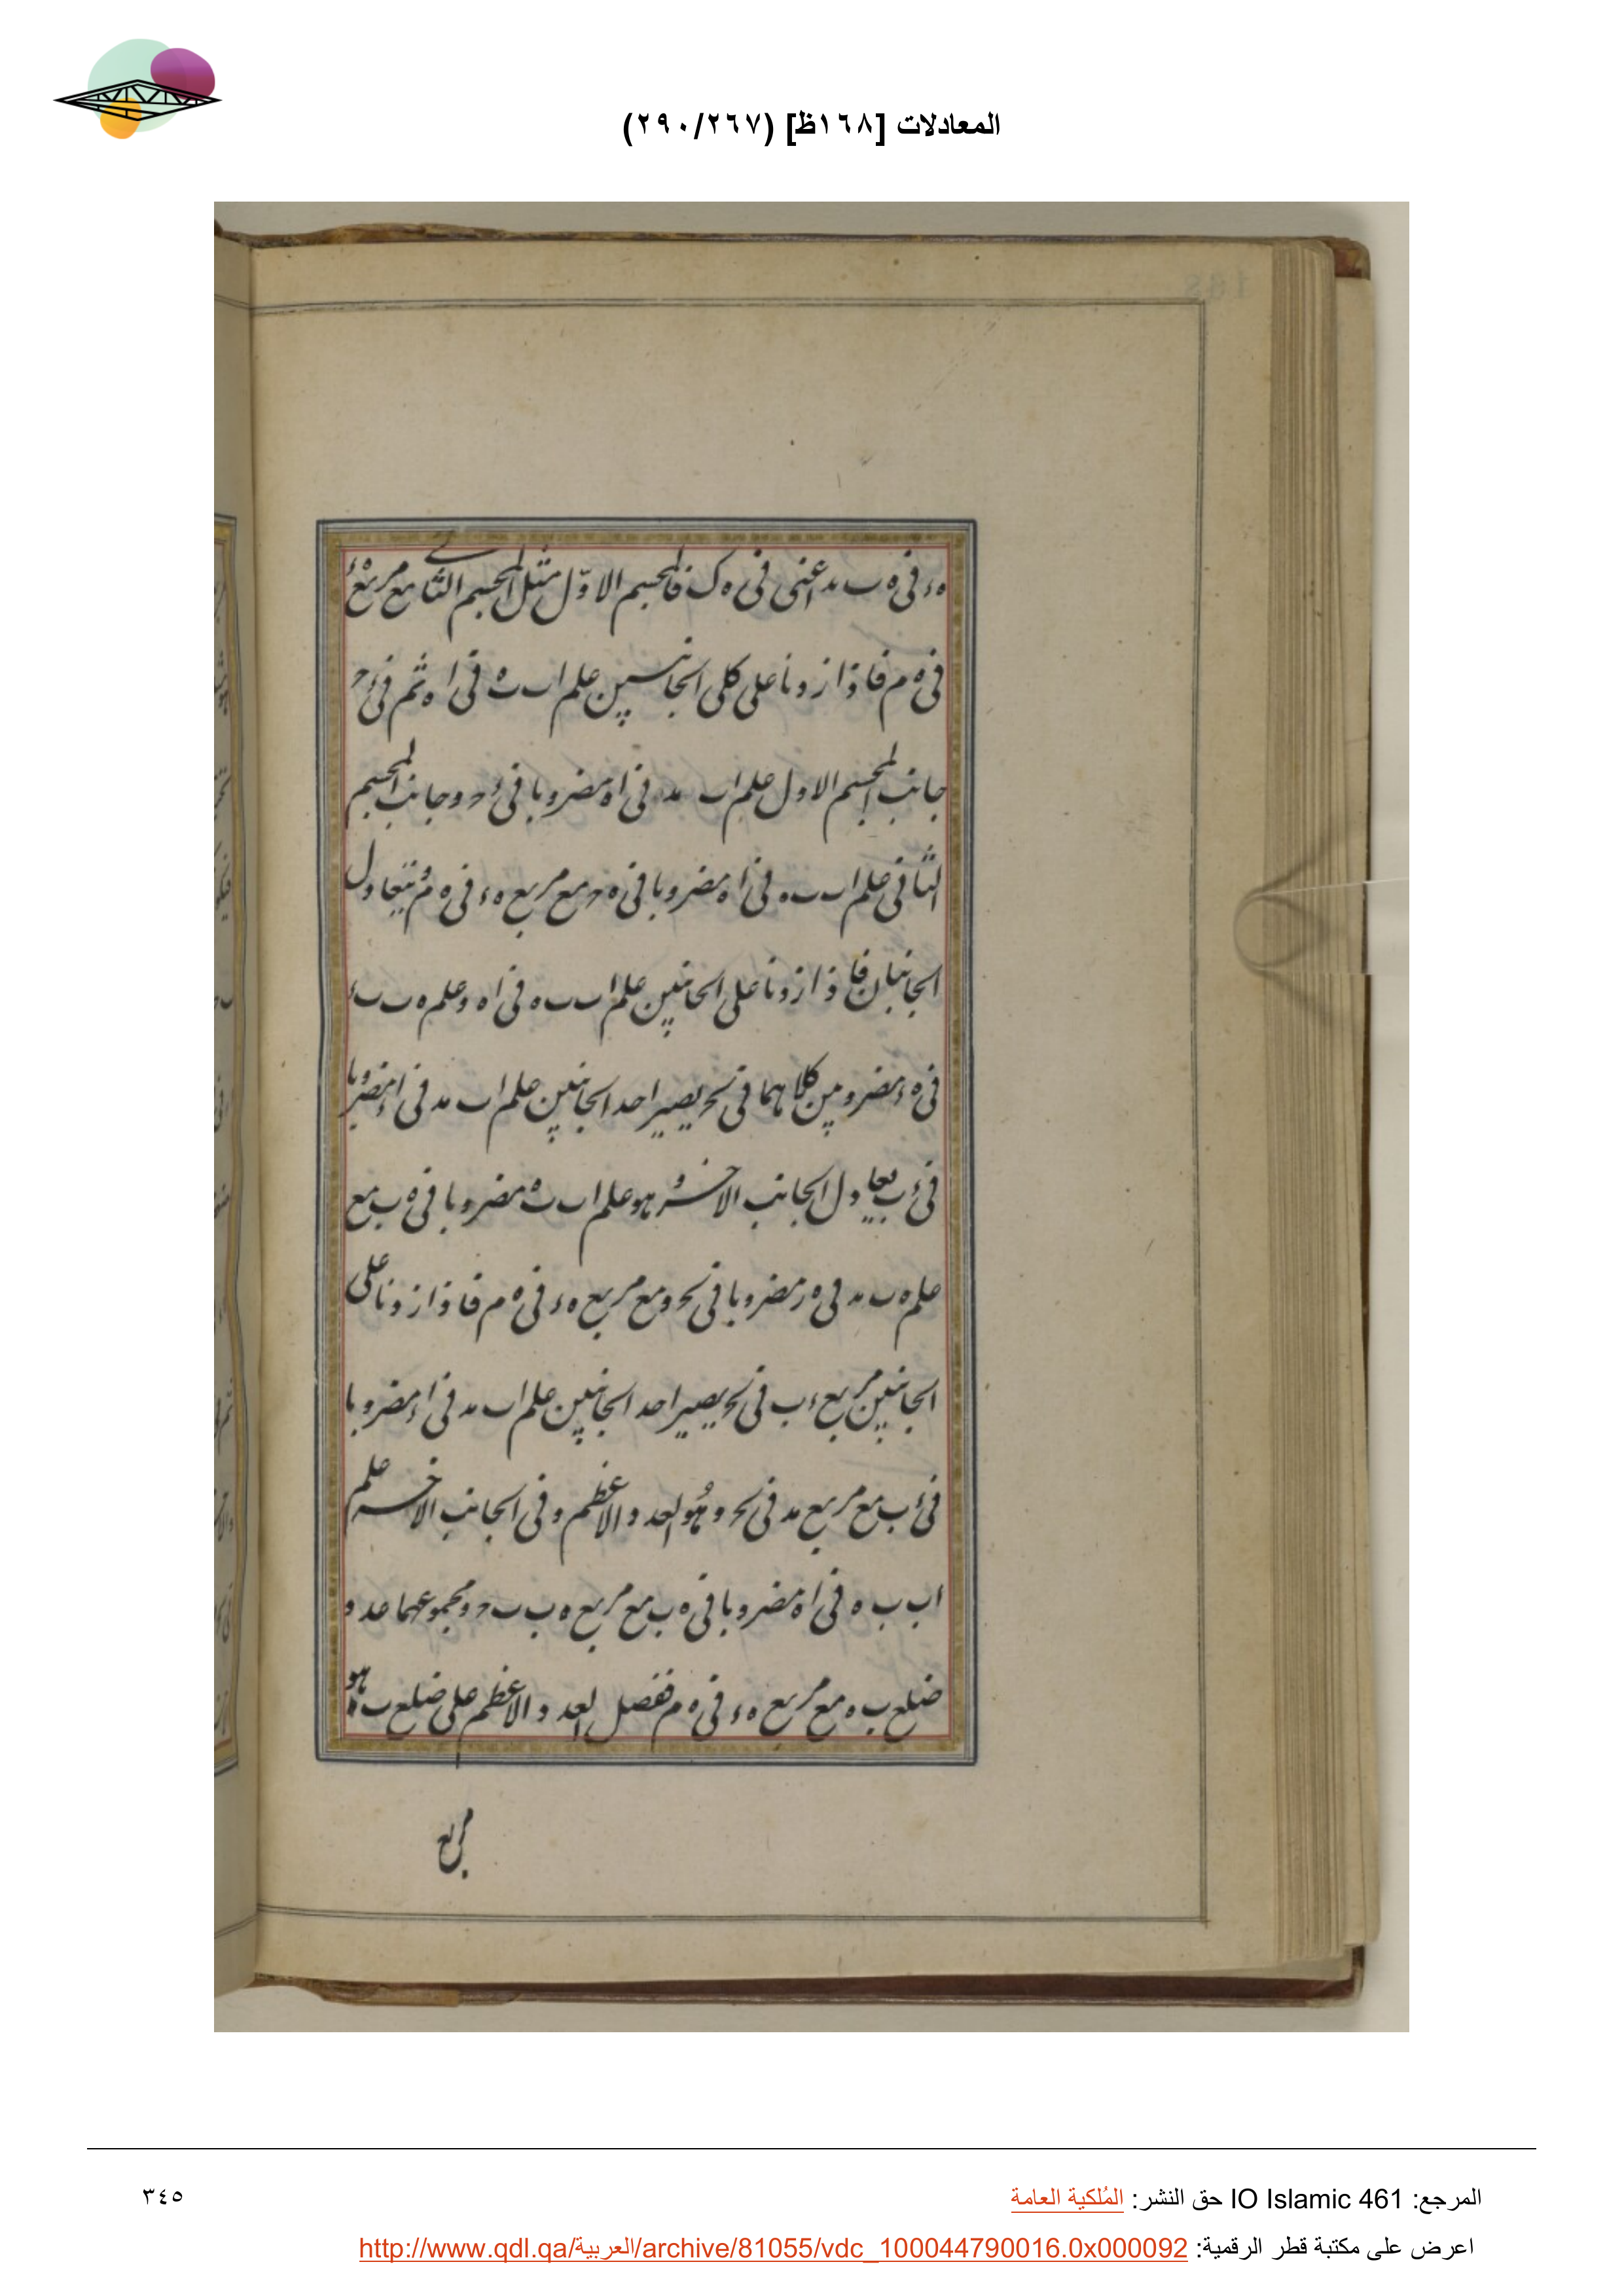 المعادلات [١٦٨ظ] (٢٩٠/٢٦٧)
ه‍ء فى ه ب مد اعنى فى ه ك فالمجسم الاوّل مثل المجسم الثانى مع مربع ه‍ء
فى ه م فاذا زدنا على كلى الجانبين علم ا ب ب ه فى ا ه ثم فى ء ح
جانب المجسم الاول علم ا ب مد فى ا ه مضروبا فى ء ح و جانب المجسم
الثانى علم ا ب ب ه فى ا ه مضروبا فى ه ح مع مربع ه ء فى ه م و يتعادل
الجانبان فاذا زدنا على الجانبين علم ا ب ب ه فى ا ه و علم ه ب ب ء
فى ه ء مضروبين كلاهما فى يصير احد الجانبين علم ا ب مد فى ا ء مضروبا
فى ء ب يعادل الجانب الاخر و هو علم ا ب ب ه مضروبا فى ه ب مع
علم ه ب مد فى ه ر مضروبا فى و مع مربع ه ء فى ه م فاذا زدنا على
الجانبين مربع ء ب فى يصير احد الجانبين علم ا ب مد فى ا ء مضروبا
فى ء ب مع مربع مد فى و هو العدد الاعظم و فى الجانب الاخر علم
ا ب ب ه فى ا ه مضروبا فى ه ب مع مربع ه ب ب ح و مجموعهما عدد
ضلع ب ه مع مربع ه ء فى ه م ففضل العدد الاعظم على ضلع ب ه هو
مربع
المرجع: IO Islamic 461 حق النشر: المُلكية العامة
٣٤٥
اعرض على مكتبة قطر الرقمية: http://www.qdl.qa/العربية/archive/81055/vdc_100044790016.0x000092